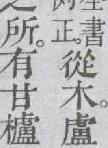 書
正。從木。盧
所。有甘櫨